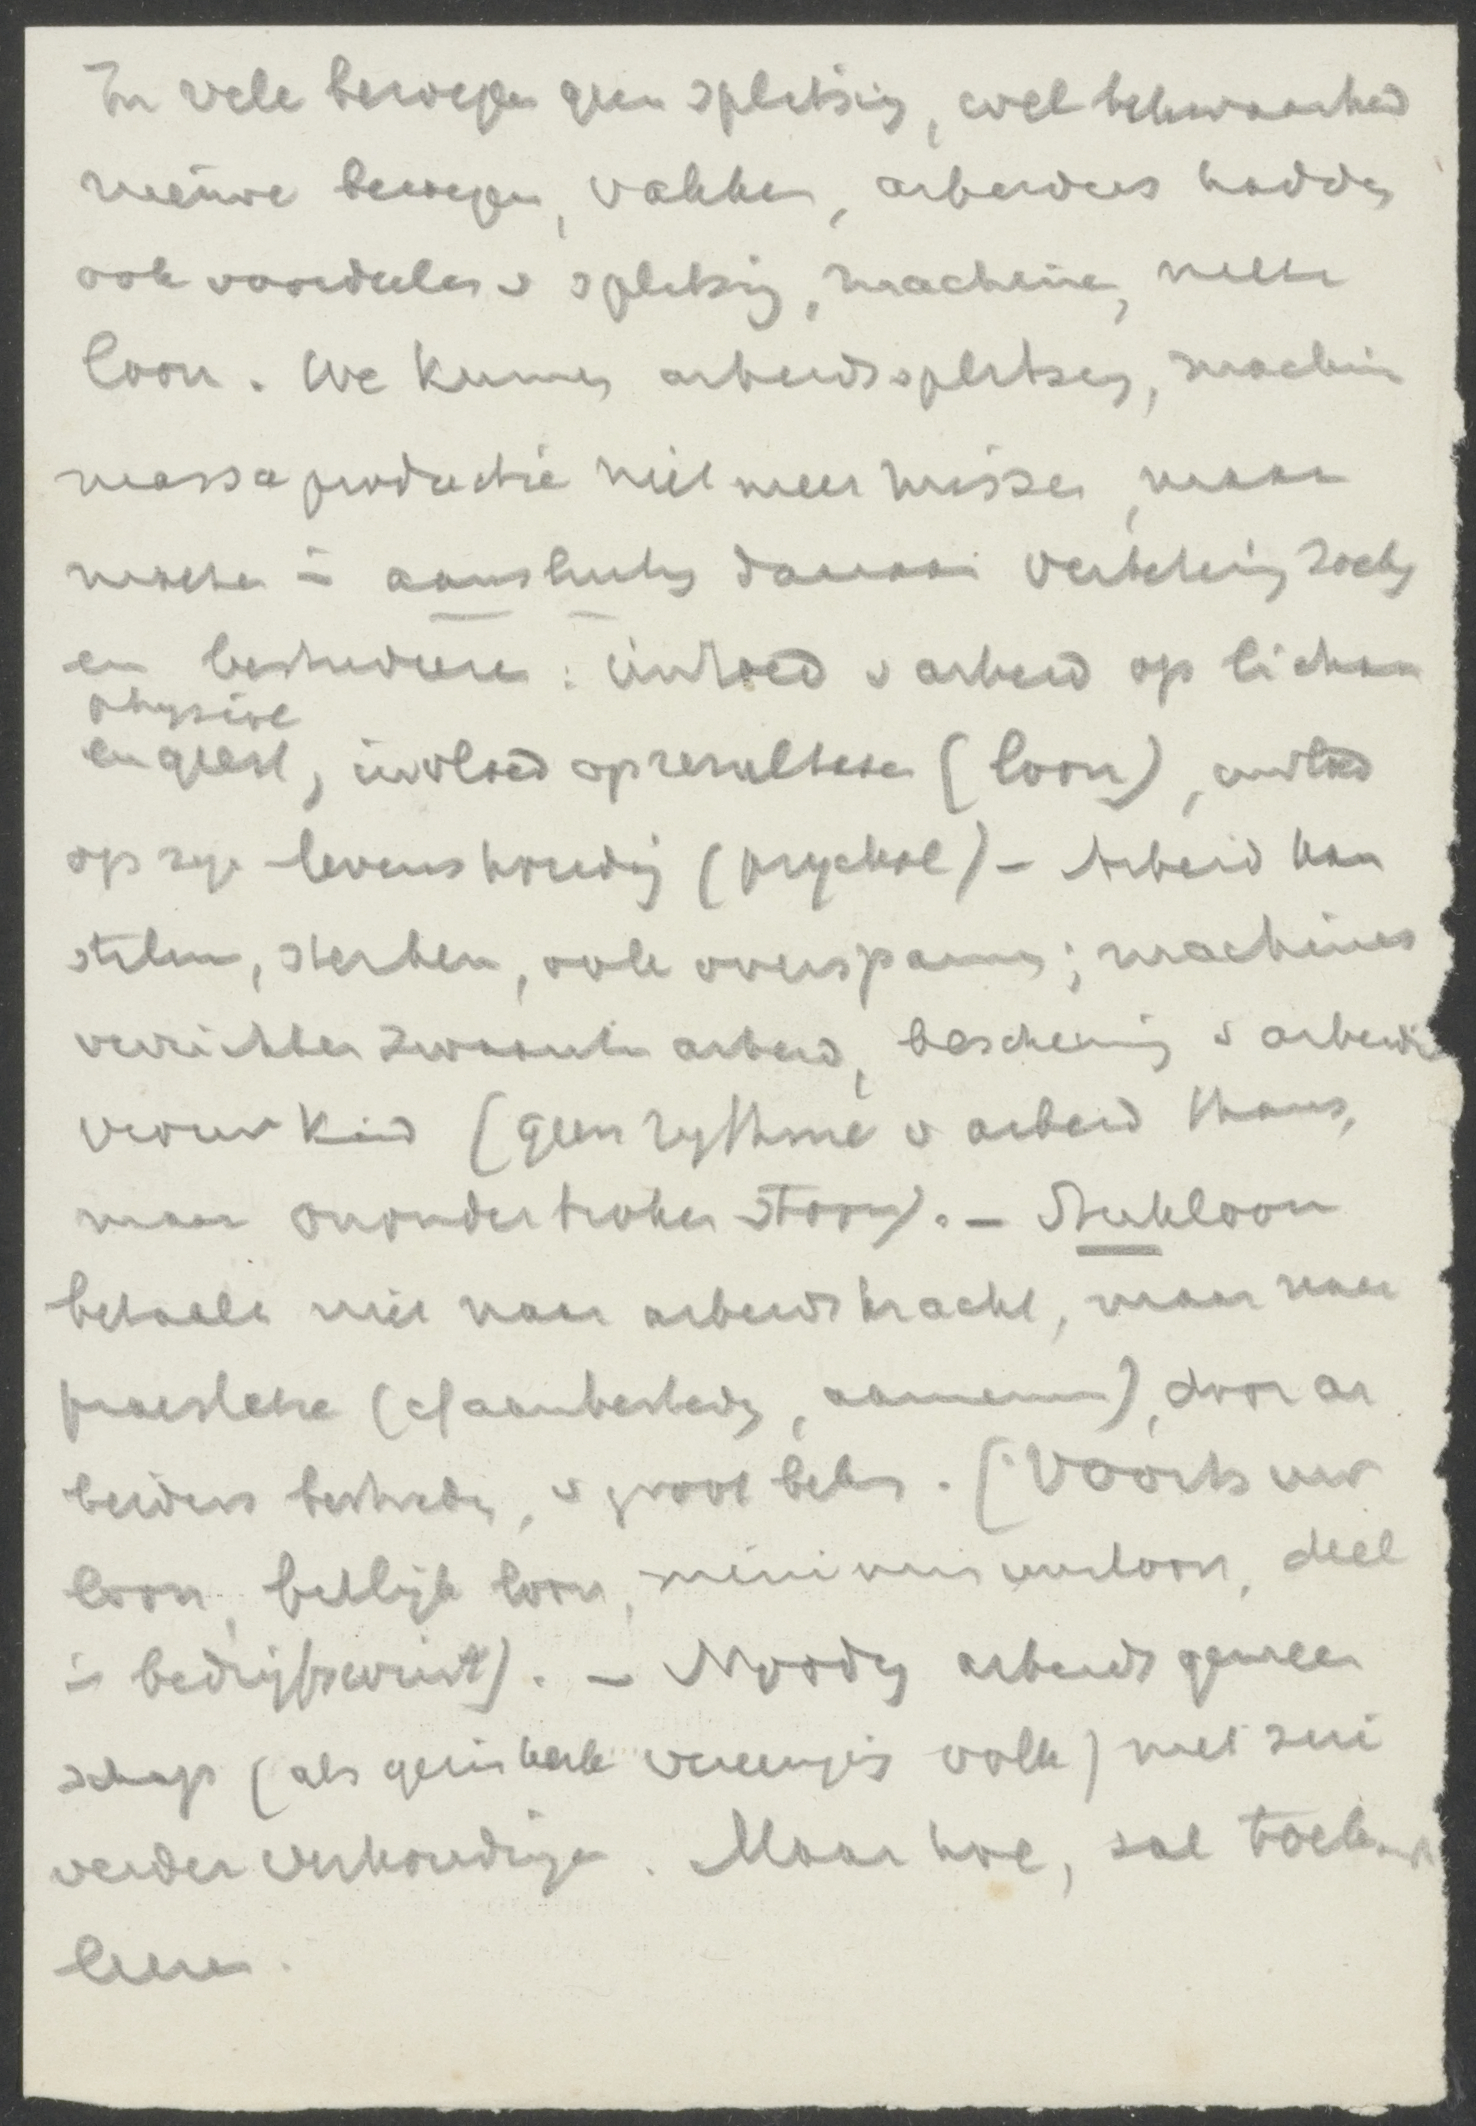 In vele beroepen geen splitsing, wel bekwaamheid
nieuwe beroepen, vakken, arbeiders hadden
ook voordeelen v splitsing, machine, meer
loon. We kunnen arbeidssplitsing, machine
massaproductie niet meer missen, maar
moeten in aansluiting daaraan verbetering zoeken
en bestudeeren: invloed v arbeid op lichaam
physiol
en geest, invloed op resultaten (loon), invloed
op zijn levenshouding (psychol) – Arbeid kan
stalen, sterken, ook overspannen; machines
verrichten zwaarste arbeid, bescherming v arbeid
vrouw kind (geen rythme v arbeid thans,
maar ononderbroken stroom). – Stukloon
betaald niet naar arbeidskracht, maar naar
praestatie (cf aanbesteding, aannemen), door ar
beiders bestreden, v groot belang. (Voorts uur
loon, billijk loon, minimum uurloon, deel
in bedrijfswinst). – Noodig arbeidsgemeen
schap (als gezin kerk vereeniging volk) met zeer
verder verhoudingen. Maar hoe, zal toekomst
leeren.